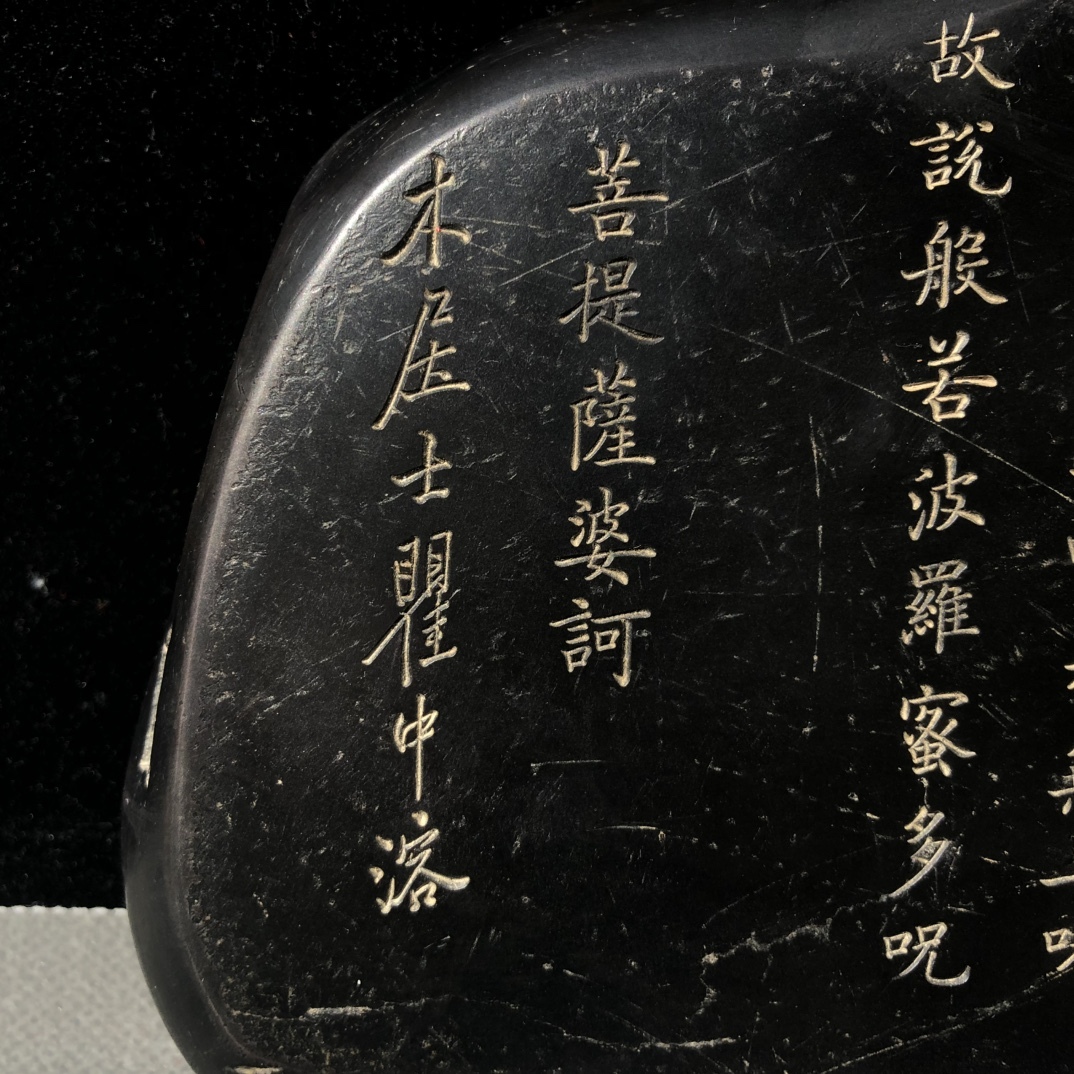 故說般若波羅蜜多呪
菩提薩婆訶
木居士瞿中溶